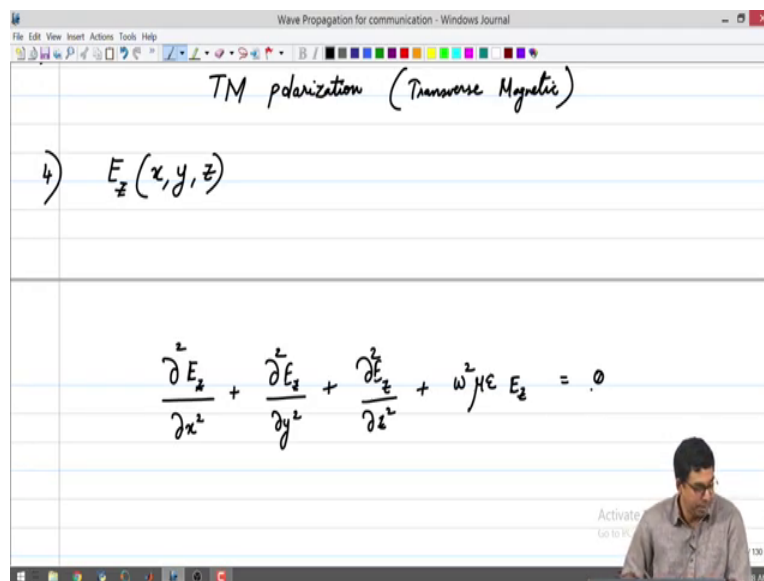 Wave Propagation for communication - Windows Journal
File Edit View Insert Actions Tools Help
TM polarization (Transverse Magnetic)
4) E_z (x, y, z)
∂²E_z/∂x² + ∂²E_z/∂y² + ∂²E_z/∂z² + ω²με E_z = 0
Activate
Go to